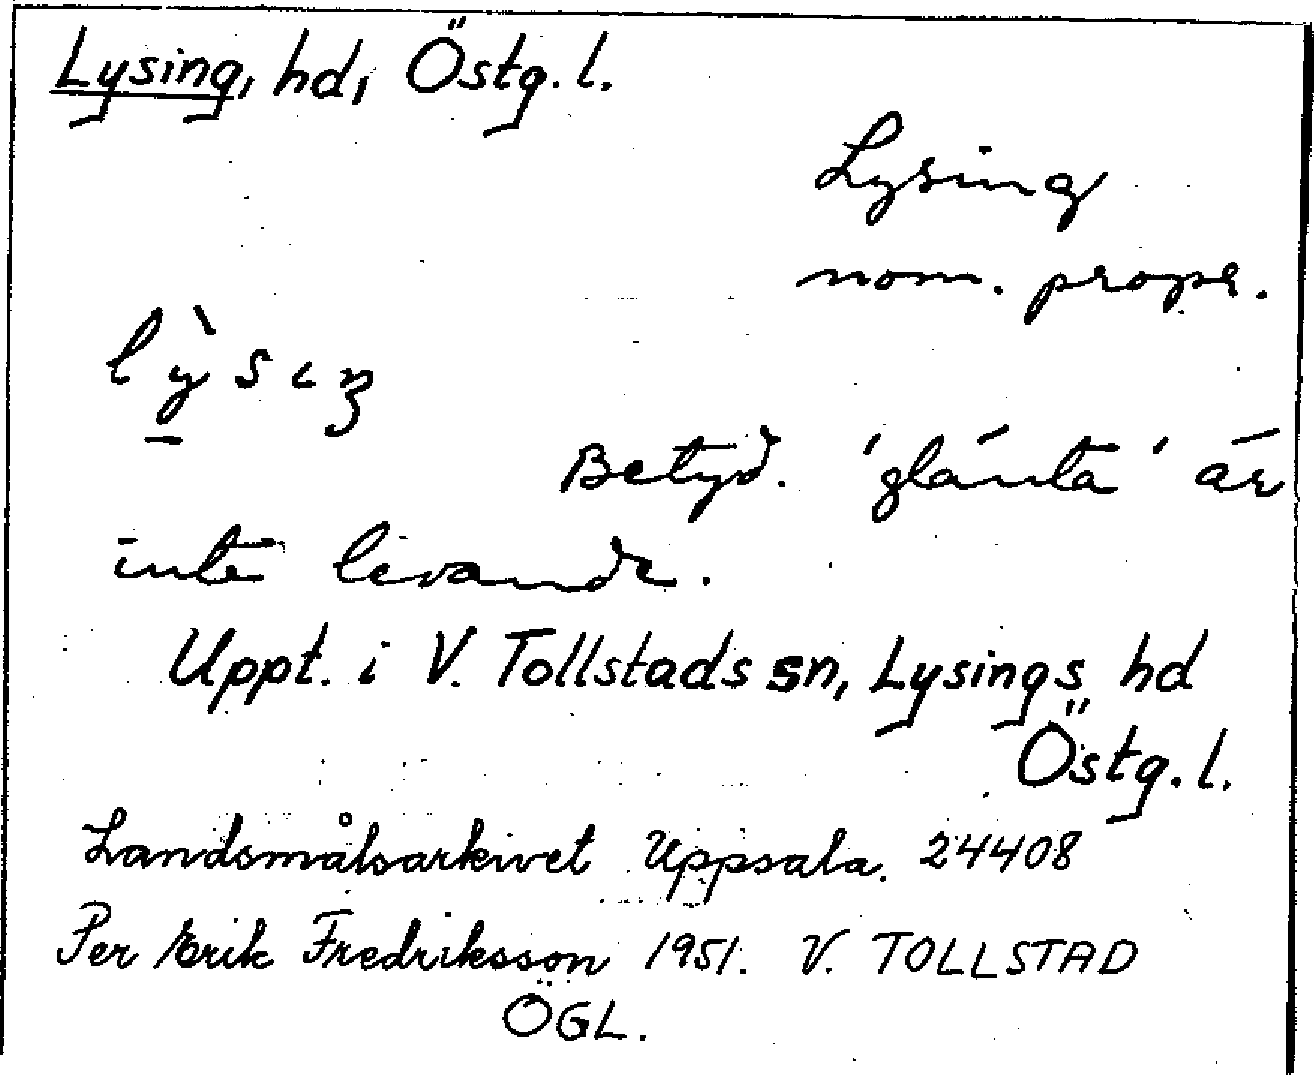 Lysing, hd, Östg. l.
Lysing
nom. propr.
lỳsıŋ
Betyd. 'glänta' är
inte levande.
Uppt. i V. Tollstads sn, Lysings hd
Östg. l.
Landsmålsarkivet Uppsala. 24408
Per Erik Fredriksson 1951. V. TOLLSTAD
ÖGL.